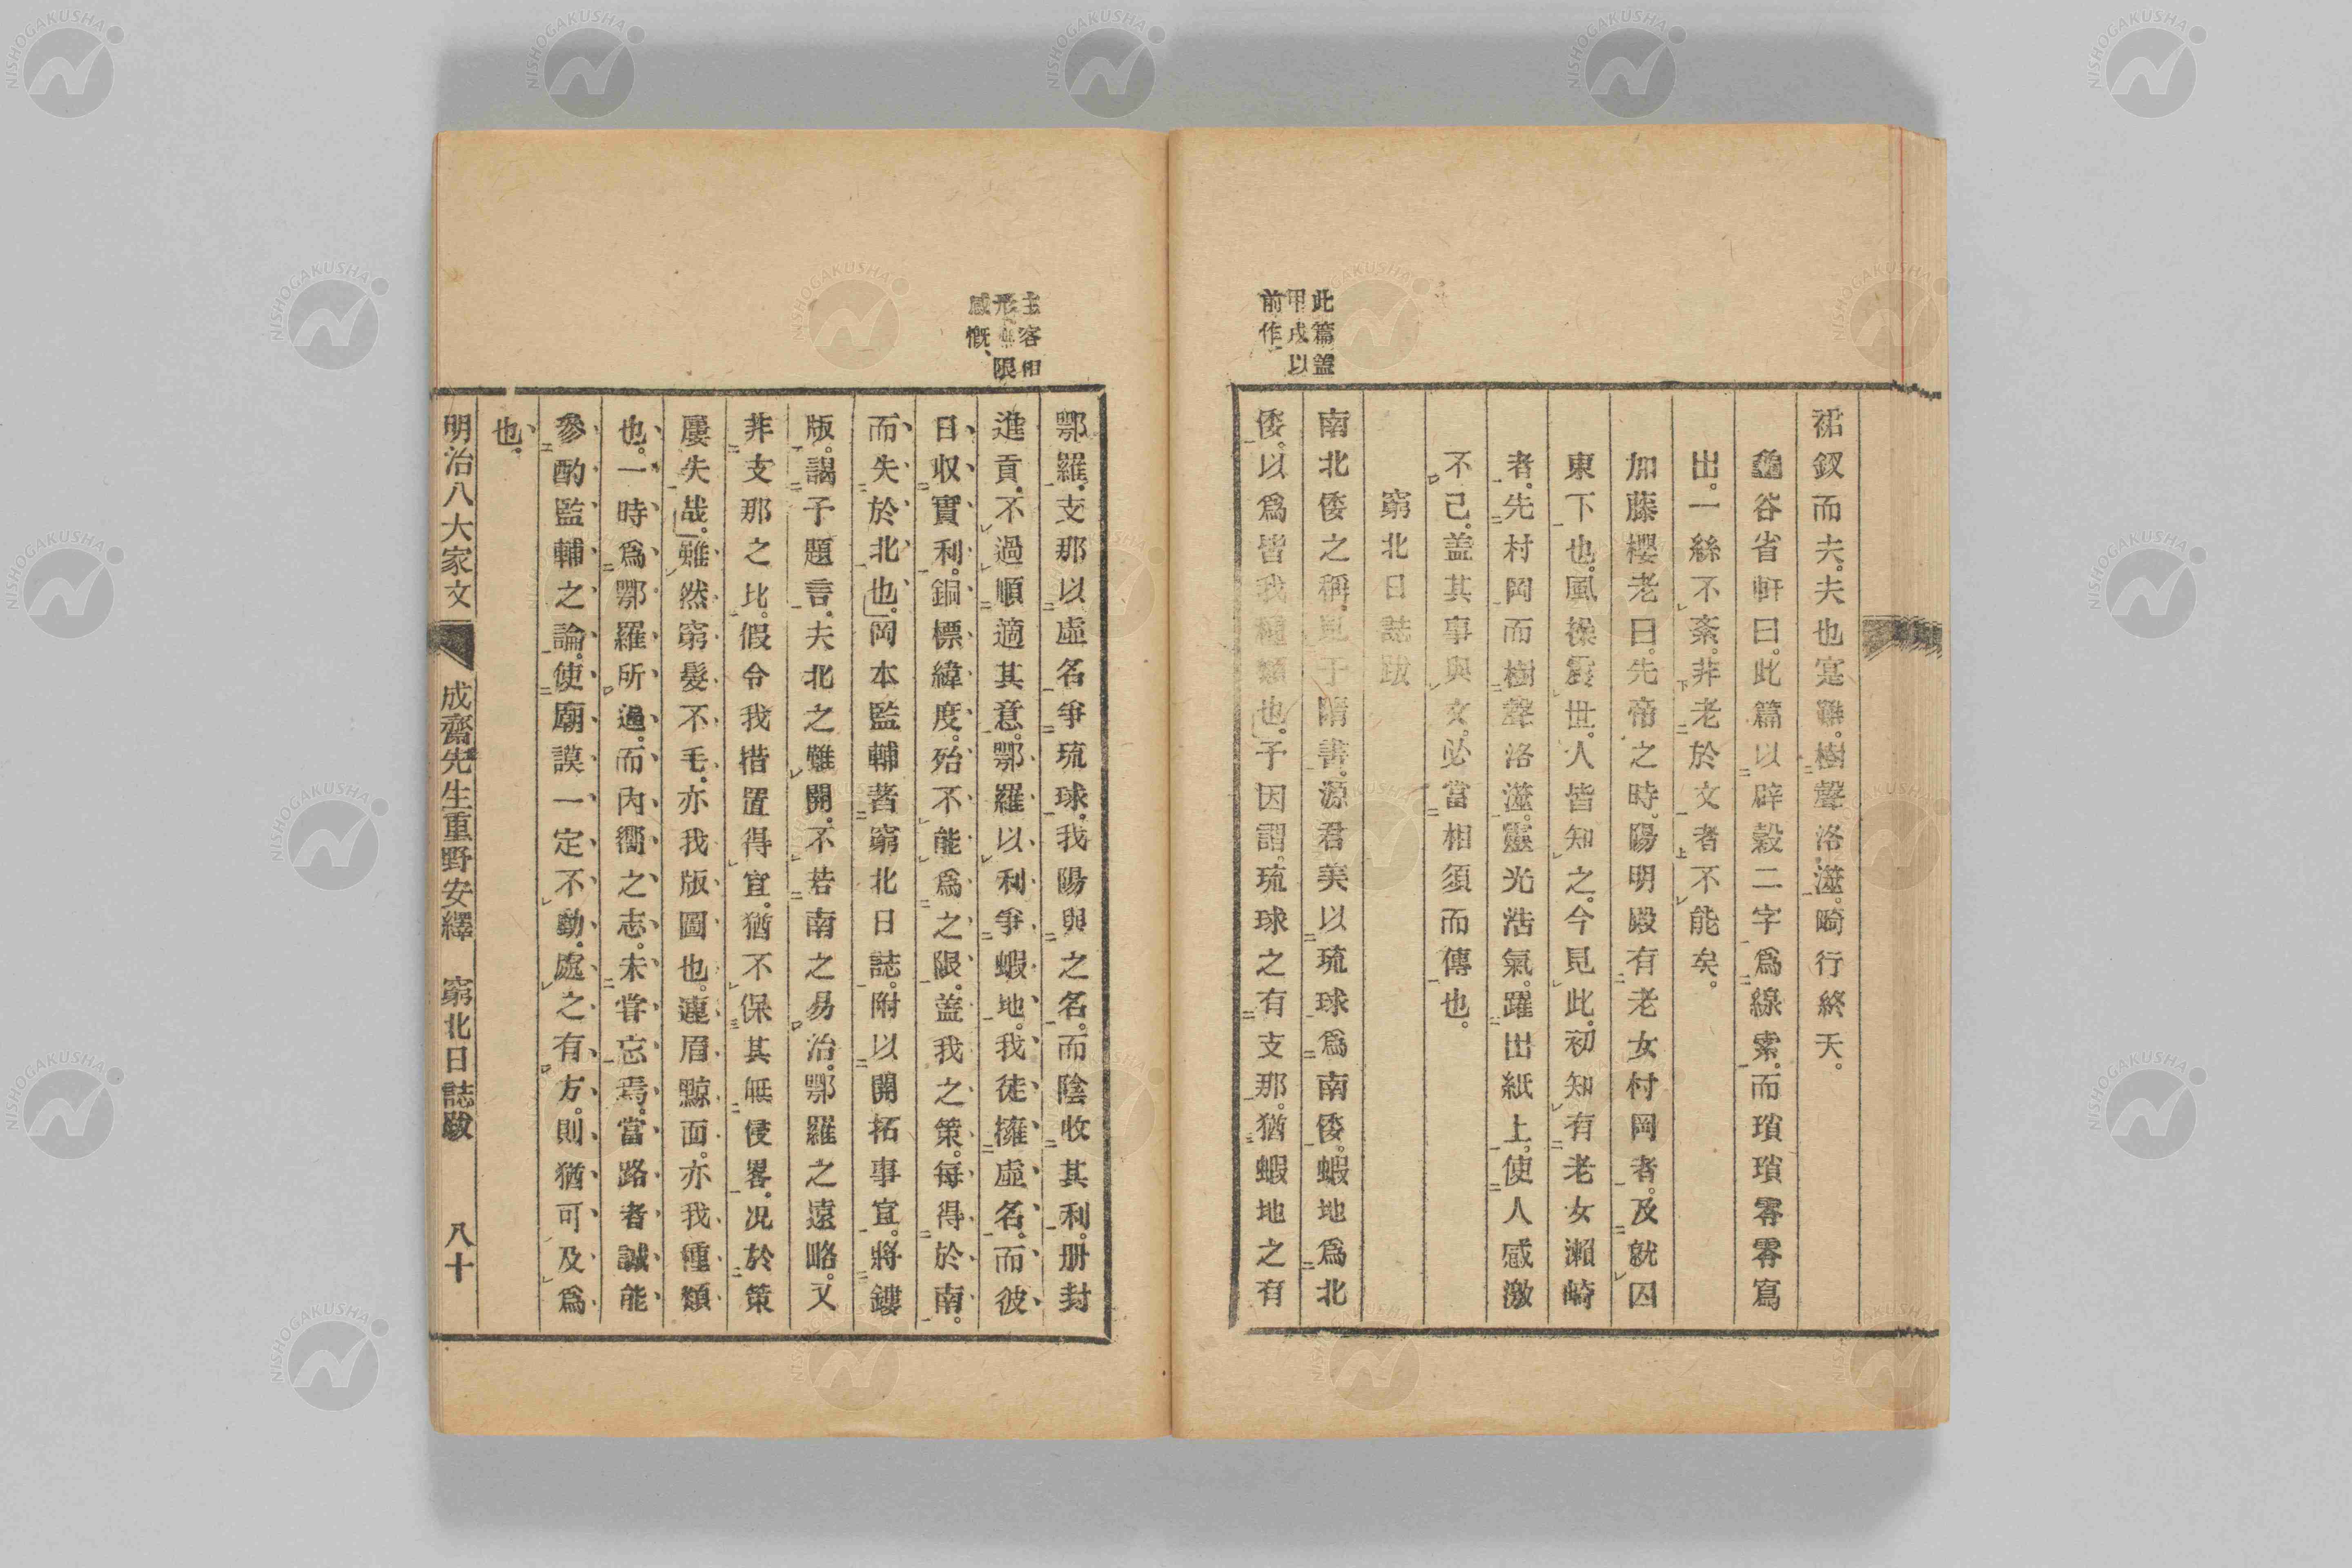 裙釵而夫。夫也寔難。樹聲洛澨。畸行終天。
龜谷省軒曰。此篇以辟穀二字爲線索。而瑣瑣零零寫
出。一絲不紊。非老於文者不能矣。
加藤櫻老曰。先帝之時。陽明殿有老女村岡者。及就囚
東下也。風操震世。人皆知之。今見此。初知有老女瀨崎
者。先村岡而樹聲洛澨。靈光浩氣。躍出紙上。使人感激
不已。蓋其事與文。必當相須而傳也。
窮北日誌跋
此篇蓋
甲戌以
前作
南北倭之稱。見于隋書。源君美以琉球爲南倭。蝦地爲北
倭。以爲皆我種類也。予因謂。琉球之有支那。猶蝦地之有
主客相
形無限
感慨、
鄂羅。支那以虛名爭琉球。我陽與之名。而陰收其利。册封
進貢。不過順適其意。鄂羅以利爭蝦地。我徒擁虛名。而彼
日收實利。銅標緯度。殆不能爲之限。蓋我之策。每得於南。
而失於北也。岡本監輔著窮北日誌。附以開拓事宜。將鏤
版。謁予題言。夫北之難開。不若南之易治。鄂羅之遠略。又
非支那之比。假令我措置得宜。猶不保其無侵畧。况於策
屢失哉。雖然窮髮不毛。亦我版圖也。連眉黥面。亦我種類
也。一時爲鄂羅所過。而內嚮之志。未嘗忘焉。當路者誠能
參酌監輔之論。使廟謨一定不動。處之有方。則猶可及爲
也。
明治八大家文 成齋先生重野安繹 窮北日誌跋 八十
NISHOGAKUSHA